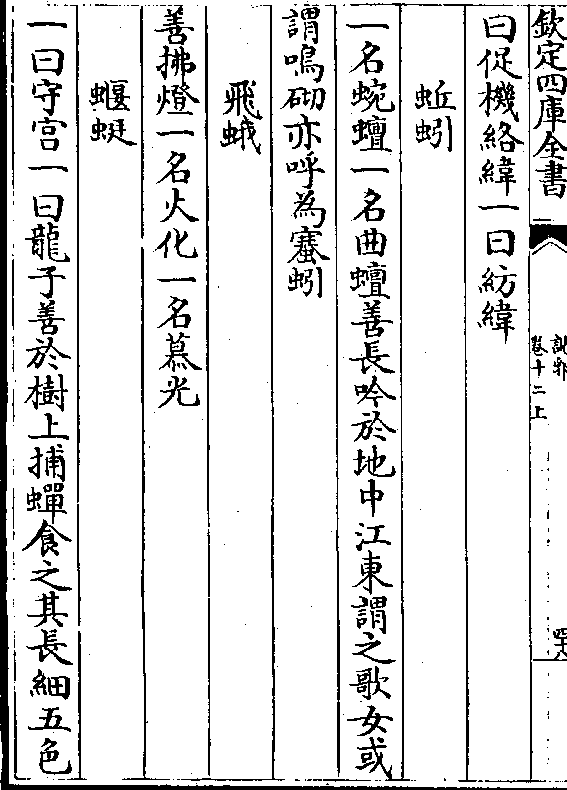 欽定四庫全書
說郛
卷十二上
四八
曰促機絡緯一曰紡緯
蚯蚓
一名蜿蟺一名曲蟺善長吟於地中江東謂之歌女或
謂鳴砌亦呼為𧍗蚓
飛蛾
善拂燈一名火化一名慕光
蝘蜓
一曰守宫一曰龍子善於樹上捕蟬食之其長細五色